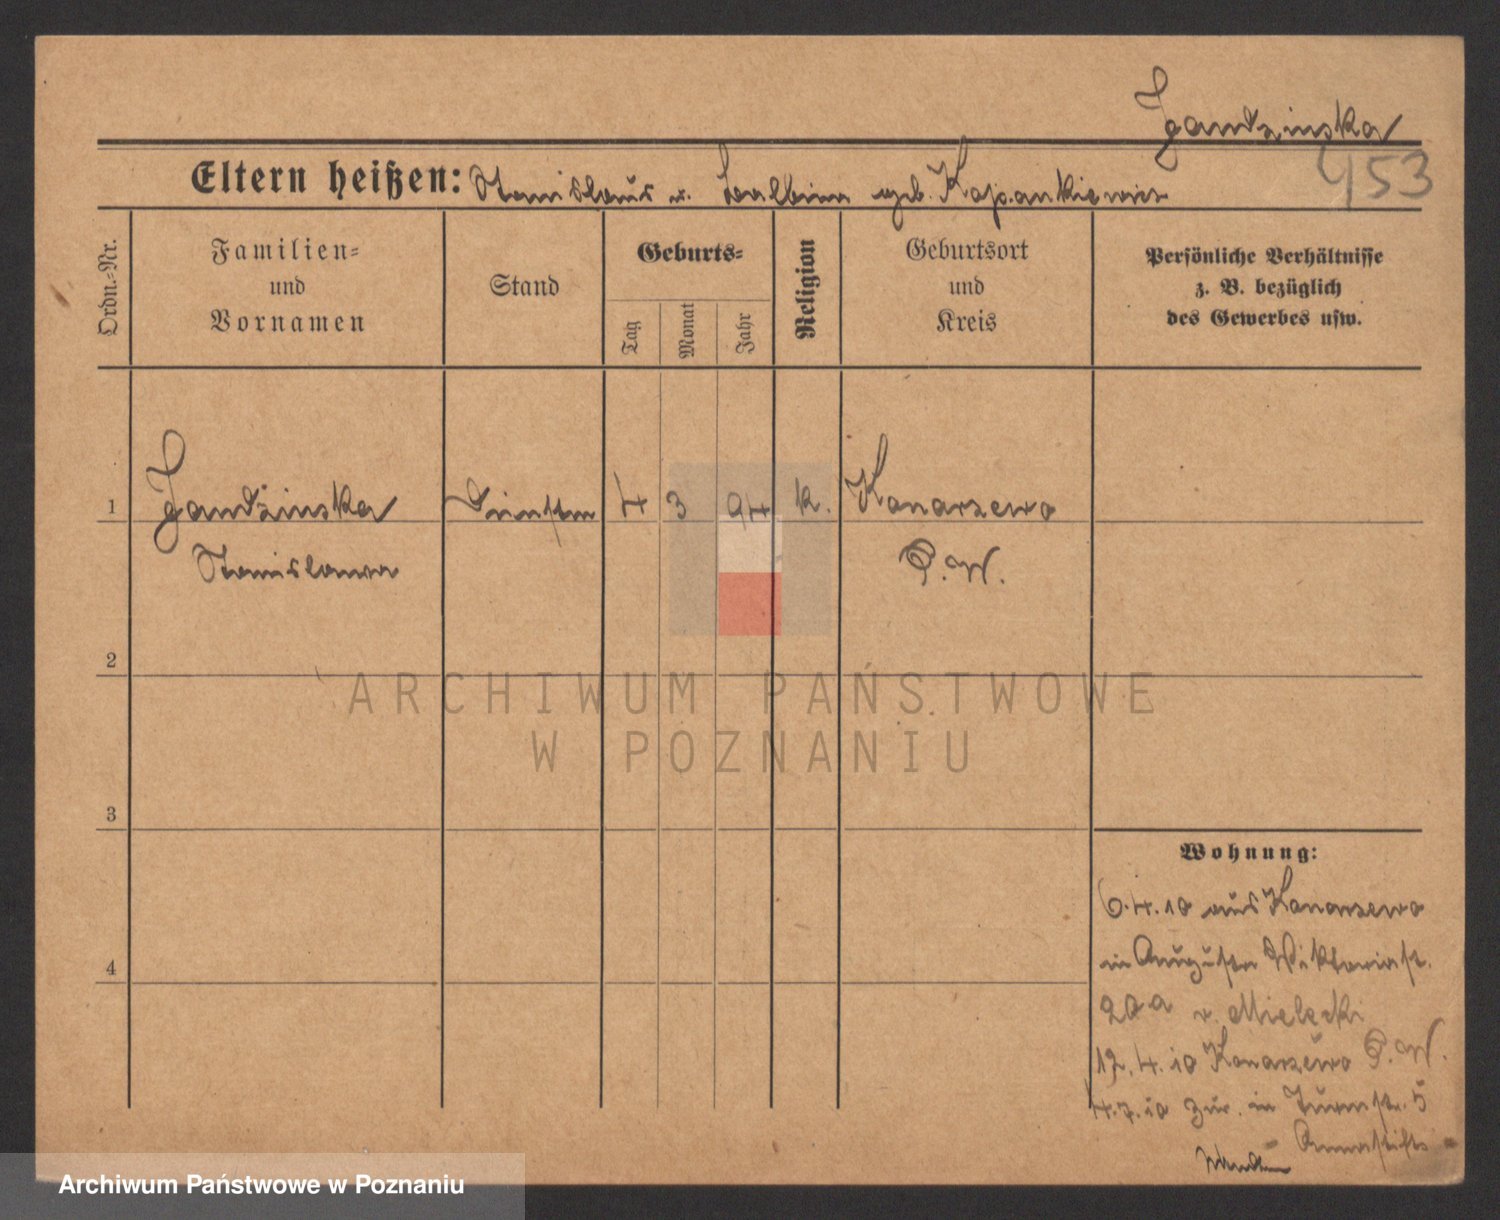 Jgandzinska
453
Eltern heißen: Stanislaus u. Balbina geb. Kajzankiewicz
Ordn.-Nr.
Familien-
und
Vornamen
Stand
Geburts-
Tag
Monat
Jahr
Religion
Geburtsort
und
Kreis
Persönliche Verhältnisse
z. B. bezüglich
des Gewerbes usw.
1 4 3 94 k. Konarzewo
Stanislawa P.W.
2
ARCHIWUM PAŃSTWOWE
W POZNANIU
3
Wohnung:
6.4.10 aus Konarzewo
4
in Augusta Viktoriast.
20a v. Mielęcki
12.4.10 Konarzewo P.W.
4.7.10 zur. in Turmstr. 5
Archiwum Państwowe w Poznaniu